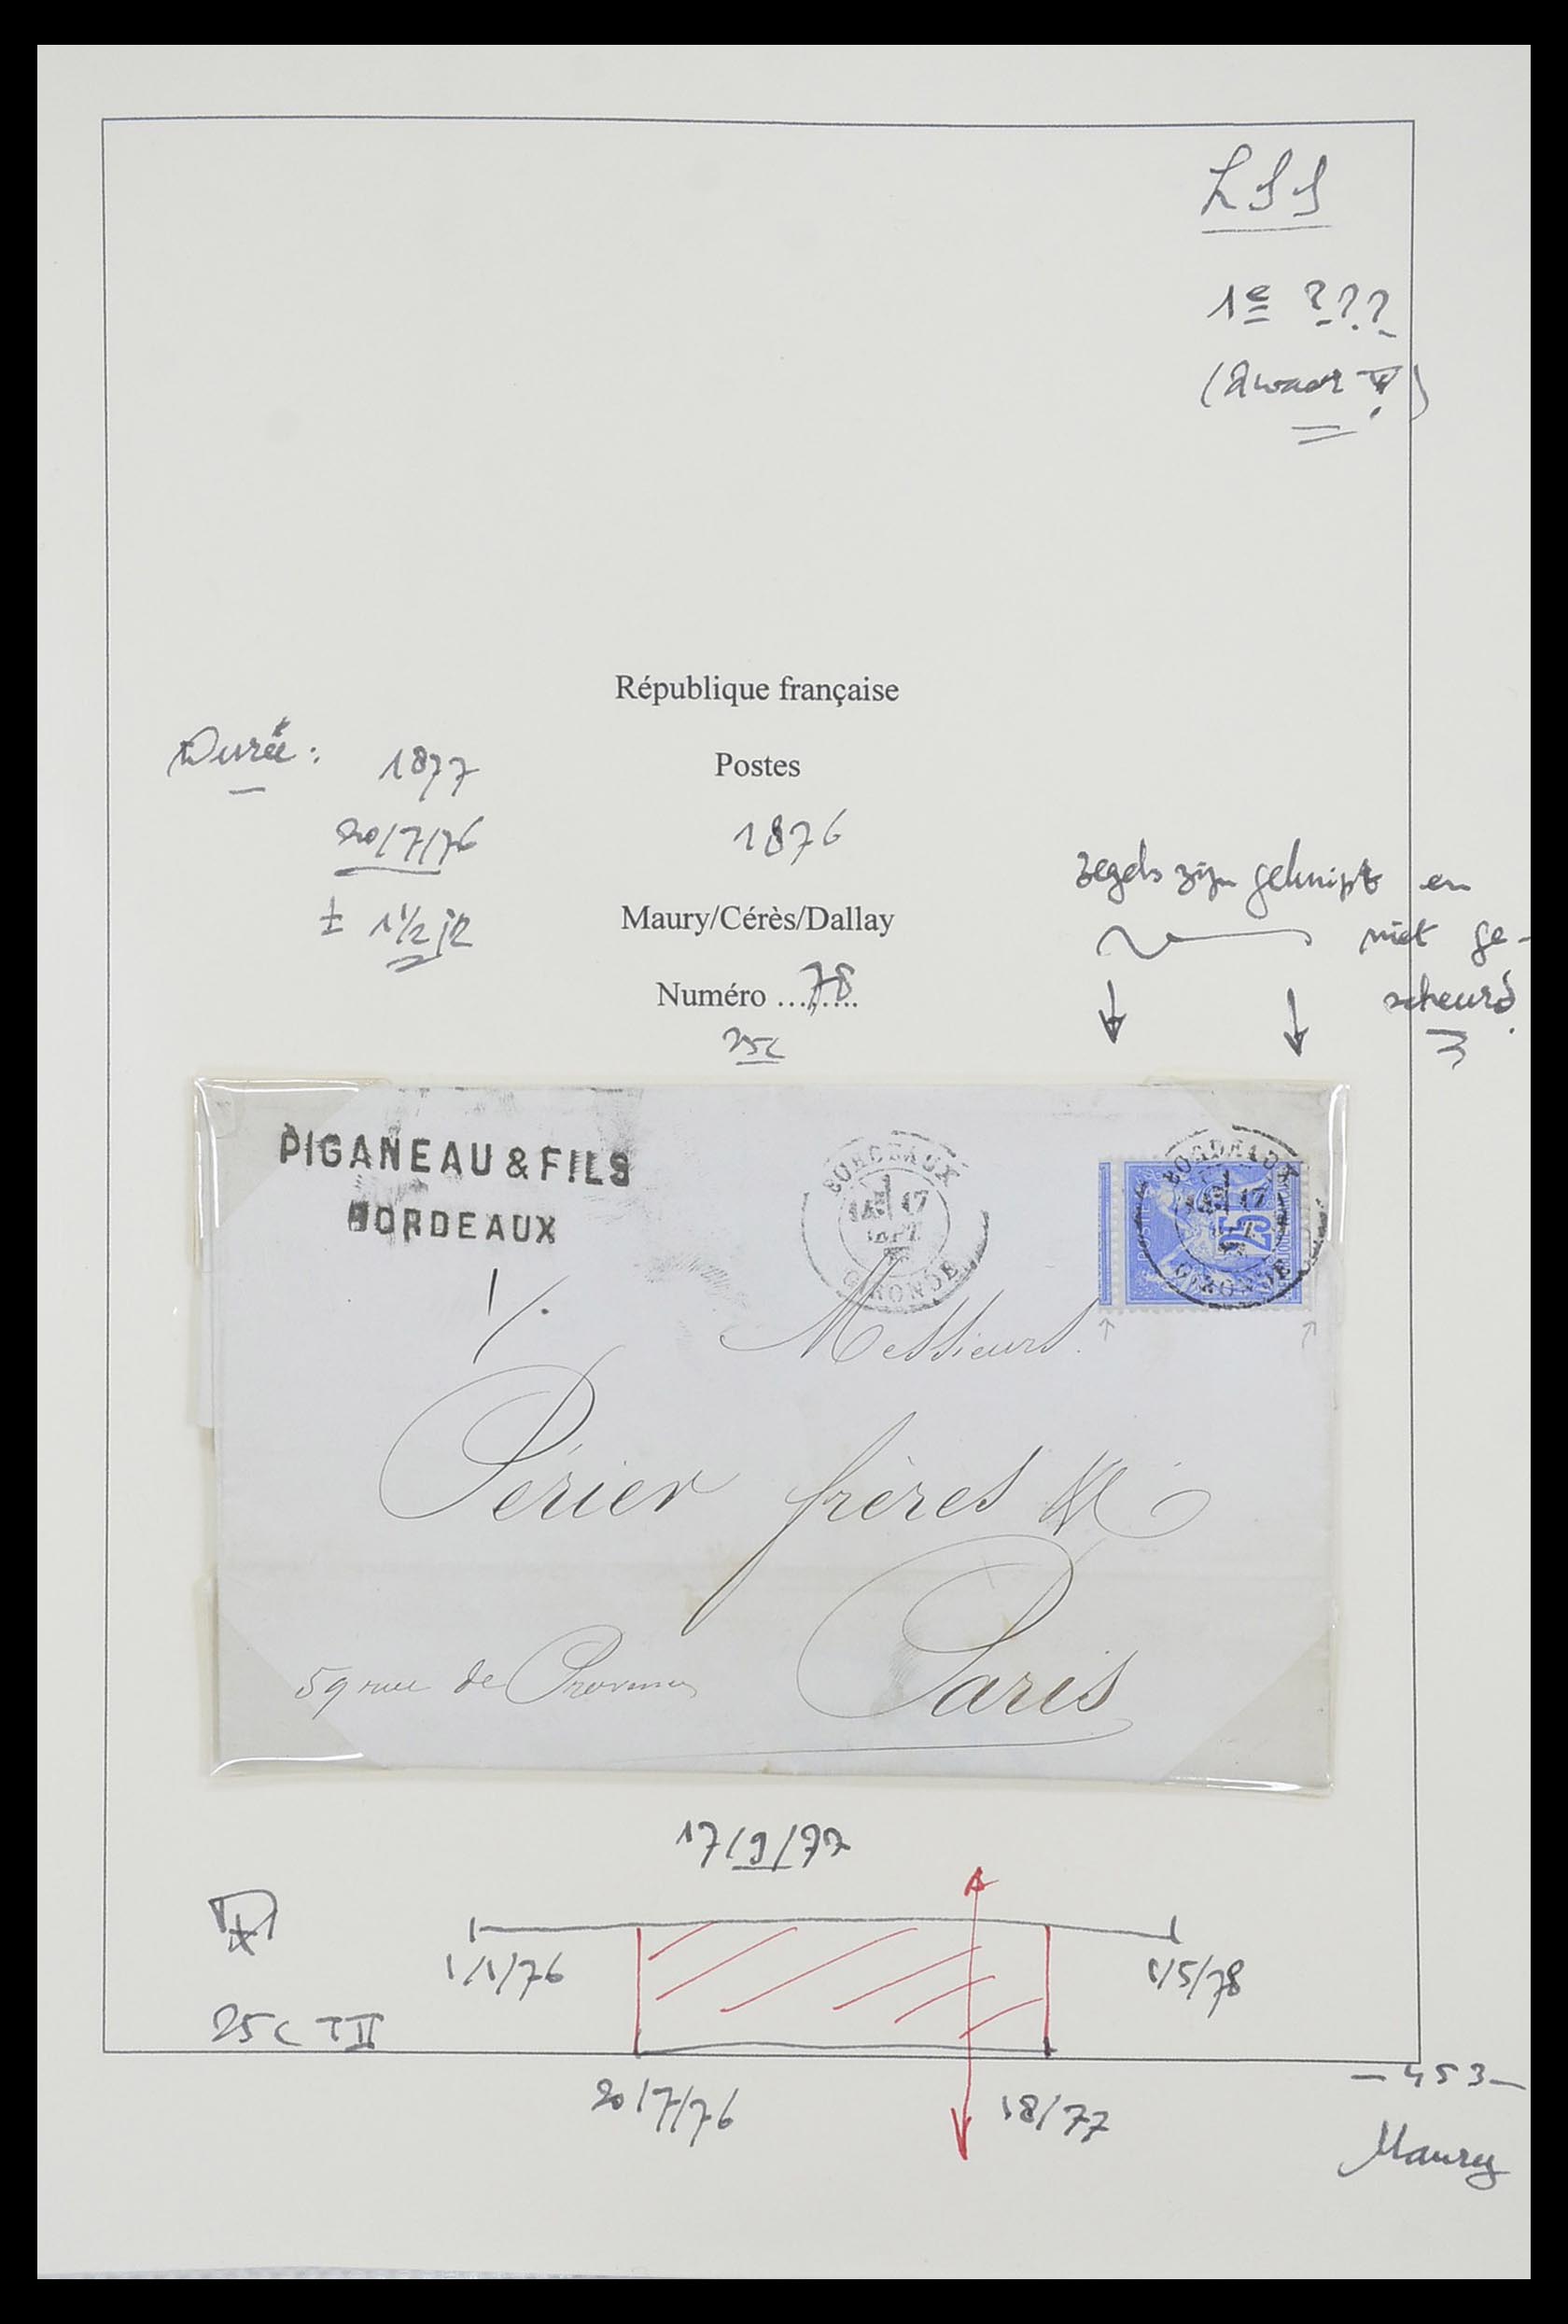 LSS
1e ???
République française
Durée :
1877
Postes
20/7/76
1876
± 1 1/2 jr
Maury/Cérès/Dallay
Numéro ........ 78
25c
zegels zijn geknipt en
niet ge-
scheurd.
PIGANEAU & FILS
BORDEAUX
BORDEAUX
17
GIRONDE
BORDEAUX
17
GIRONDE
25
1/.
Messieurs
Périer frères &
Paris
59 rue de Provence
17/9/77
1/1/76
1/5/78
25c TII
20/7/76
18/77
-453-
Maury